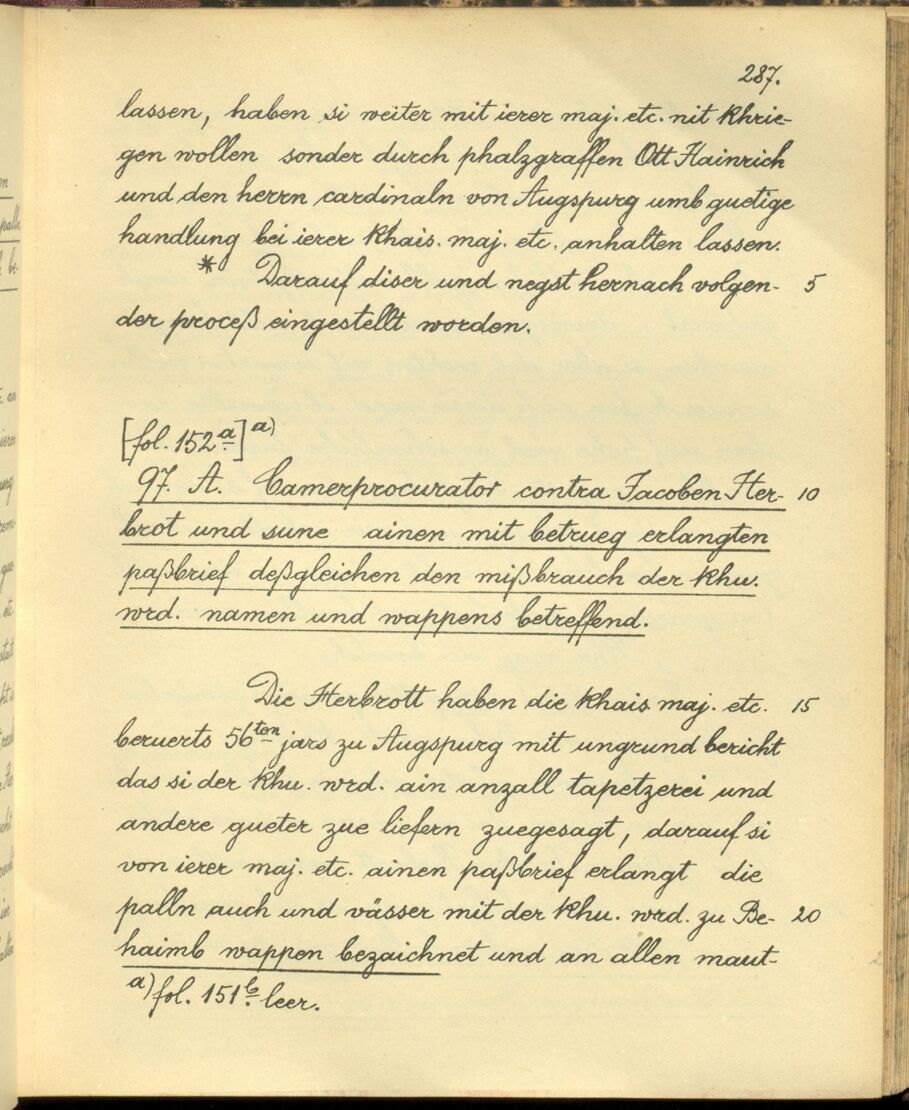 287.
lassen, haben si weiter mit ierer maj. etc. nit khrie-
gen wollen sonder durch phalzgraffen Ott Hainrich
und den herrn cardinaln von Augspurg umb guetige
handlung bei ierer khais. maj. etc. anhalten lassen.
* Darauf diser und negst hernach volgen- 5
der proceß eingestellt worden.
[fol. 152a.] a)
97. A. Camerprocurator contra Jacoben Her- 10
brot und sune ainen mit betrueg erlangten
paßbrief deßgleichen den mißbrauch der khu.
wrd. namen und wappens betreffend.
Die Herbrott haben die khais. maj. etc. 15
beruerts 56ton jars zu Augspurg mit ungrund bericht
das si der khu. wrd. ain anzall tapetzerei und
andere gueter zue liefern zuegesagt, darauf si
von ierer maj. etc. ainen paßbrief erlangt die
palln auch und vässer mit der khu. wrd. zu Be- 20
haimb wappen bezaichnet und an allen maut-
a) fol. 151b. leer.